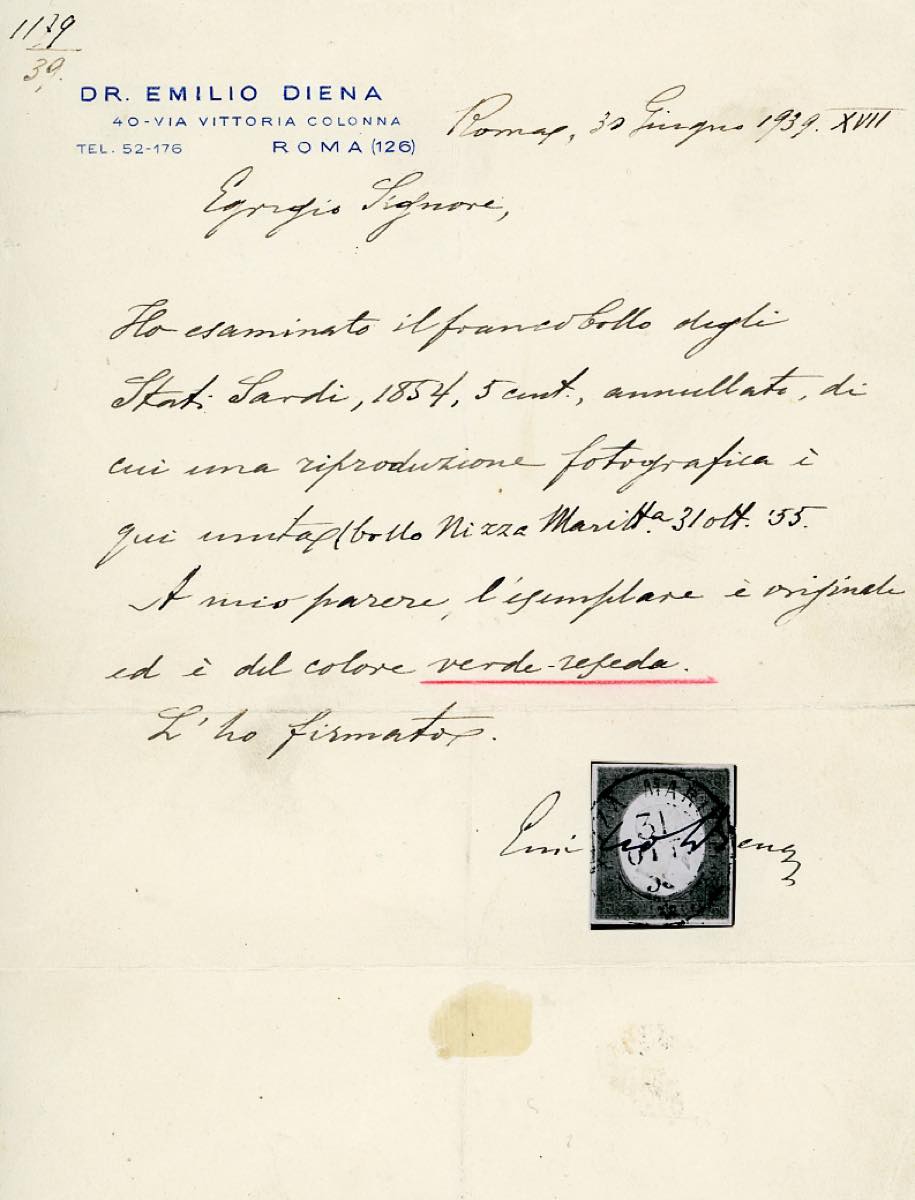 1179
39.
DR. EMILIO DIENA
40-VIA VITTORIA COLONNA
TEL. 52-176 ROMA (126)
Roma, 30 Giugno 1939. XVII
Egregio Signore,
Ho esaminato il francobollo degli
Stati Sardi, 1854, 5 cent., annullato, di
cui una riproduzione fotografica è
qui unita (bollo Nizza Maritt.a 31 ott. '55.
A mio parere, l'esemplare è originale
ed è del colore verde-reseda.
L'ho firmato.
Emilio Diena
ZZA MARI
31
OTT
55